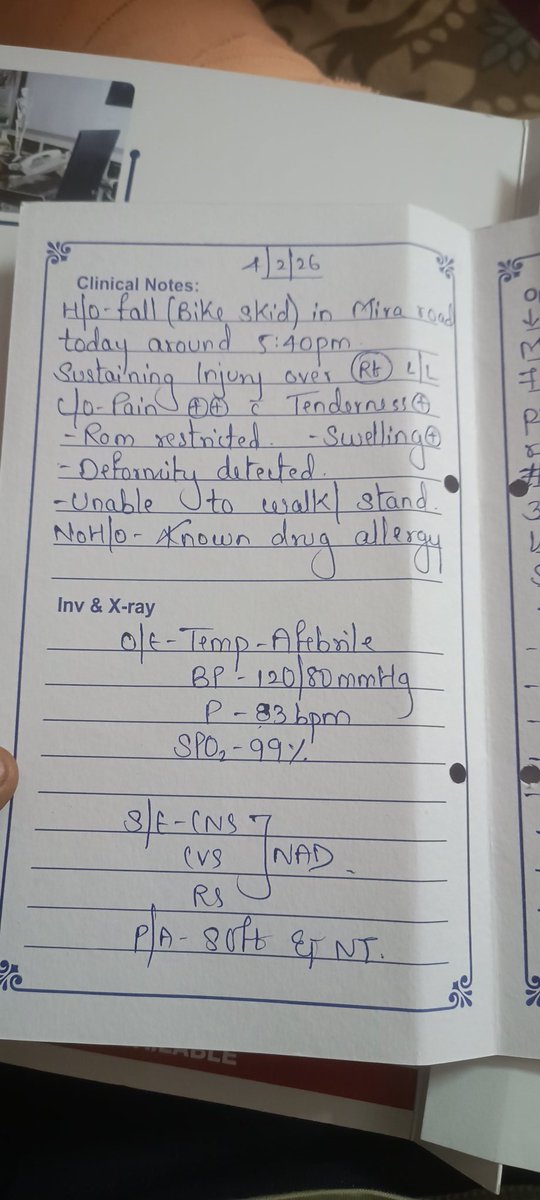 4/2/26
Clinical Notes:
H/O-fall (Bike skid) in Mira road
today around 5:40pm
Sustaining Injury over (Rt) L/L
C/O-Pain ⊕⊕ c̄ Tenderness⊕
-Rom restricted. -Swelling⊕
-Deformity detected.
-Unable to walk/stand.
NoH/o-Known drug allergy
Inv & X-ray
O/E-Temp-Afebrile
BP-120/80mmHg
P-83bpm
SPO₂-99%
S/E-CNS
CVS NAD.
RS
P/A-Soft & NT.
ABLE